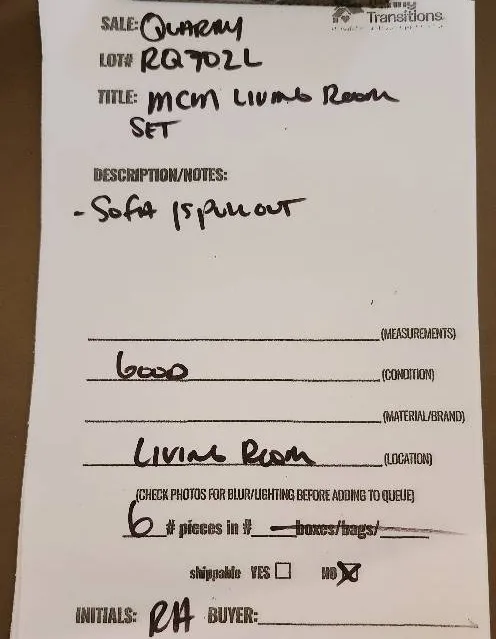 Transitions
SALE: QUARRY
LOT# RQ702L
TITLE: MCM LIVING ROOM
SET
DESCRIPTION/NOTES:
- SOFA IS PULL OUT
(MEASUREMENTS)
GOOD (CONDITION)
(MATERIAL/BRAND)
LIVING ROOM (LOCATION)
(CHECK PHOTOS FOR BLUR/LIGHTING BEFORE ADDING TO QUEUE)
6 # pieces in # boxes/bags/
shippable YES ☐ NO ☒
INITIALS: RH BUYER: